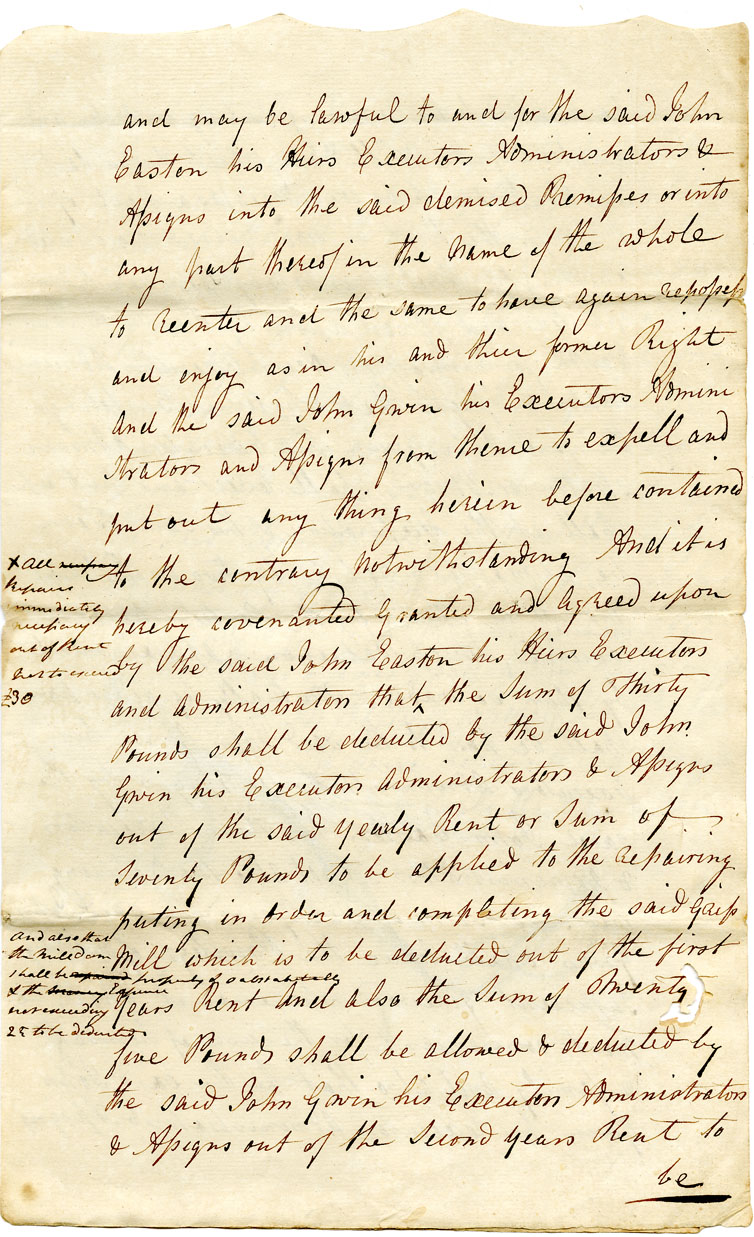 and may be lawful to and for the said John
Easton his Heirs Executors Administrators &
Assigns into the said demised Premisses or into
any part thereof in the Name of the whole
to reenter and the same to have again repossess
and enjoy as in his and their former Right
And the said John Gwin his Executors Admini
strators and Assigns from thence to expell and
put out any thing herein before contained
to the contrary Notwithstanding And it is
hereby covenanted Granted and Agreed upon
by the said John Easton his Heirs Executors
and Administrators that ^ the Sum of Thirty
Pounds shall be deducted by the said John
Gwin his Executors Administrators & Assigns
out of the said yearly Rent or Sum of
Seventy Pounds to be applied to the repairing
puting in order and completing the said Griss
Mill which is to be deducted out of the first
Years Rent And also the Sum of Twenty
five Pounds shall be allowed & deducted by
the said John Gwin his Executors Administrators
& Assigns out of the Second years Rent to
be
x All necessary
Repairs
immediately
necessary
out of Rent
not to exceed
£30
And also that
the Mill Dam
shall be properly & substantially
& the Expence
not exceeding
25 to be deducted